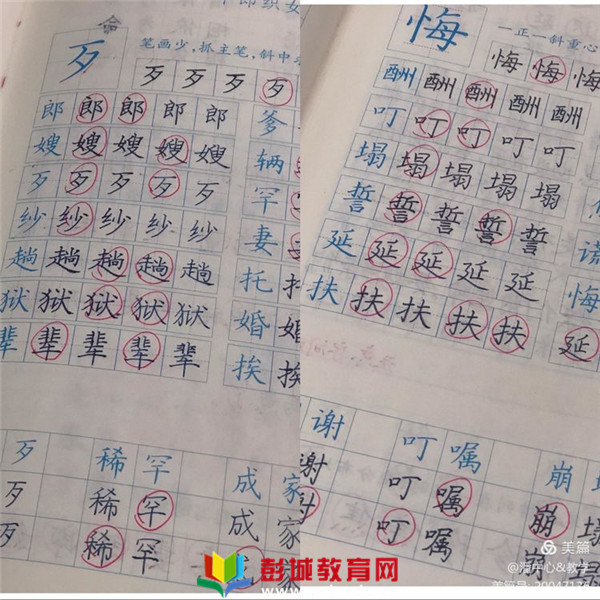 歹 笔画少，抓主笔，斜中
歹 歹 歹 歹
郎 郎 郎 郎 郎
嫂 嫂 嫂 嫂 嫂
歹 歹 歹 歹 歹
纱 纱 纱 纱 纱
趟 趟 趟 趟 趟
狱 狱 狱 狱 狱
辈 辈 辈 辈 辈
爹
辆
罕
妻
托 托
婚 婚
挨 挨
歹 稀 罕 成 家
歹 稀 罕 成 家
稀 罕 家
悔 一正一斜重心
悔 悔 悔
酬 酬 酬 酬 酬
叮 叮 叮 叮 叮
塌 塌 塌 塌 塌
誓 誓 誓 誓 誓
延 延 延 延 延
扶 扶 扶 扶 扶
谎
悔
延
谢 叮 嘱 崩
谢 叮 嘱 崩
叮 嘱
彭城教育网
美篇